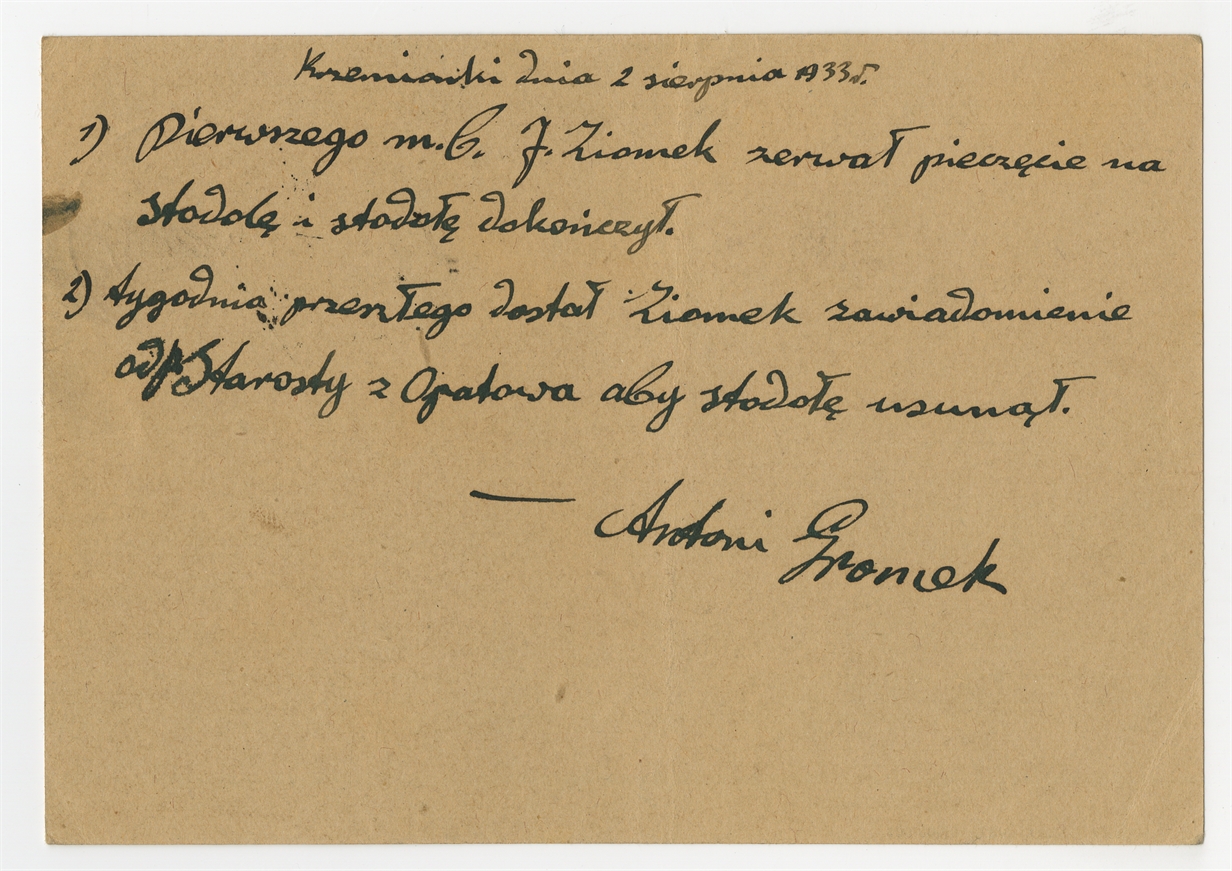 Krzemionki dnia 2 sierpnia 1933r.
1) Pierwszego m.b. J. Ziomek zerwał pieczęcie na
stodolę i stodołę dokończył.
2) tygodnia przeszłego dostał Ziomek zawiadomienie
od p. Starosty z Opatowa aby stodołę usunął.
— Antoni Gromek